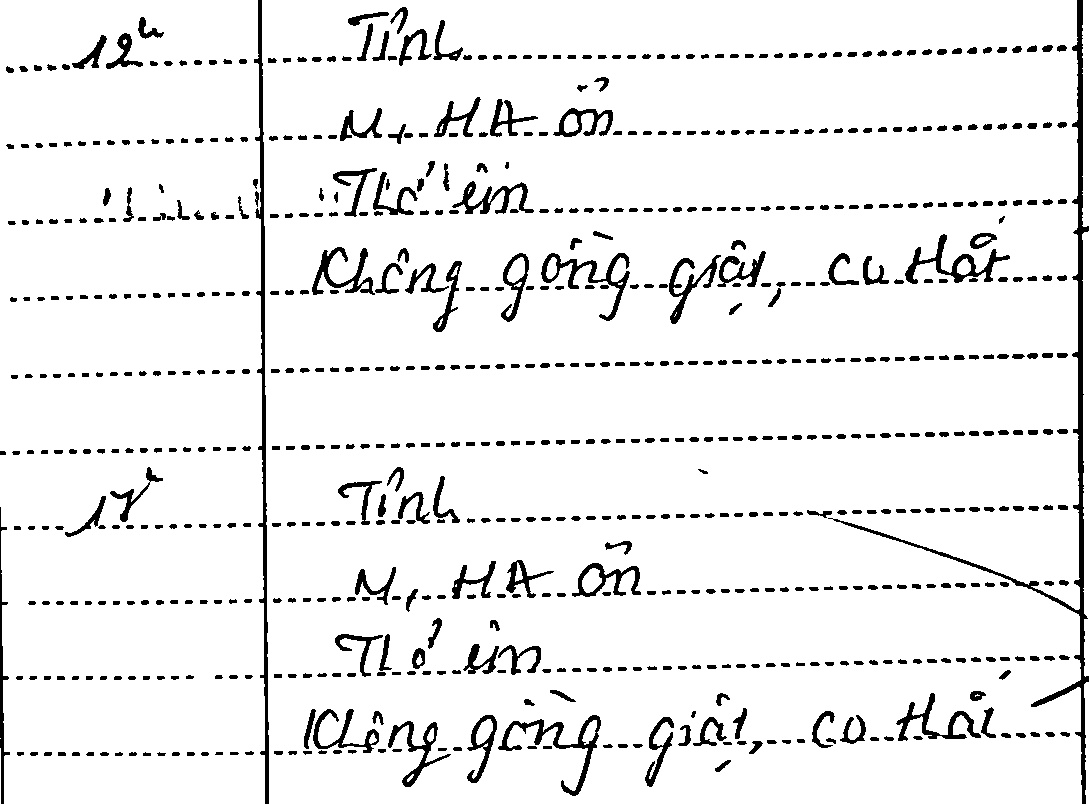 12h Tỉnh
M, HA ổn
Thở êm
Không gồng giật, co thắt
17h Tỉnh
M, HA ổn
Thở êm
Không gồng giật, co thắt